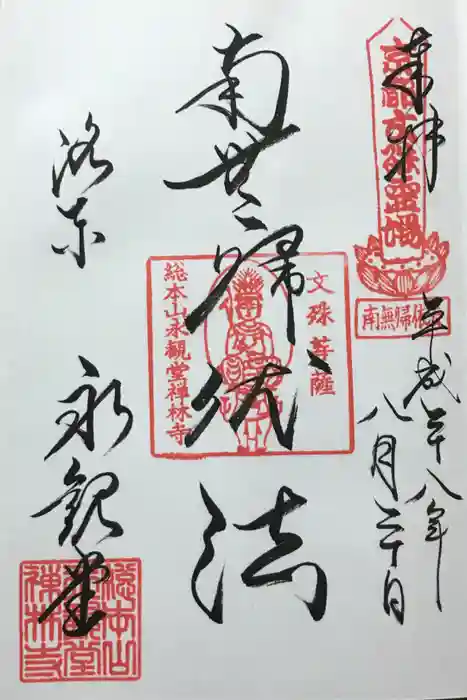 奉拝
京都文殊霊場
南無帰依
平成二十八年
八月二十日
南無帰依法
文殊菩薩
総本山永観堂禅林寺
洛東
永観堂
總本山
永觀堂
禅林寺